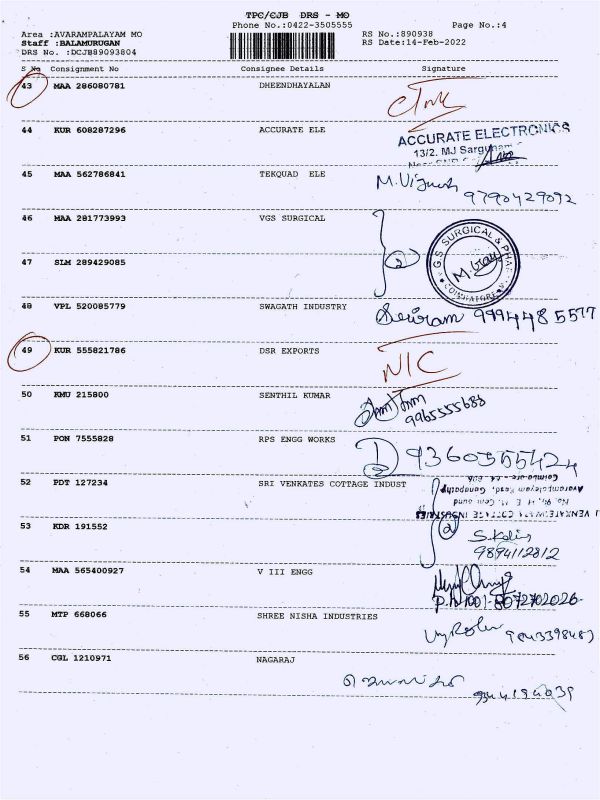 TPC/CJB DRS - MO
Phone No.:0422-3505555 Page No.:4
Area :AVARAMPALAYAM MO RS No.:890938
Staff :BALAMURUGAN RS Date:14-Feb-2022
DRS No. :DCJB89093804
S No Consignment No Consignee Details Signature
43 MAA 286080781 DHEENDHAYALAN
44 KUR 608287296 ACCURATE ELE
ACCURATE ELECTRONICS
13/2, MJ
45 MAA 562786841 TEKQUAD ELE M.Vignesh
9790429092
46 MAA 281773993 VGS SURGICAL
2
V.G.S SURGICAL & COIMBATORE
47 SLM 289429085
48 VPL 520085779 SWAGATH INDUSTRY Sriram 9994485577
49 KUR 555821786 DSR EXPORTS
N/C
50 KMU 215800 SENTHIL KUMAR
9965555688
51 PON 7555828 RPS ENGG WORKS
9360355424
52 PDT 127234 SRI VENKATES COTTAGE INDUST
Avarampalayam Road, Ganapathy
COTTAGE INDUSTRIES
53 KDR 191552 2
9894112812
54 MAA 565400927 V III ENGG
55 MTP 668066 SHREE NISHA INDUSTRIES
56 CGL 1210971 NAGARAJ